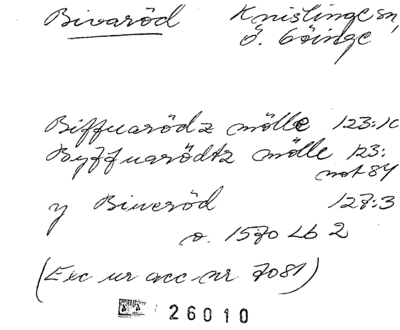 Bivaröd Knislinge sn,
Ö. Göinge
Biffuarödz mölle 123:10
Byffuarödtz mölle 123:
not 84
y Biueröd 127:3
o. 1570 Lb 2
(Exc ur acc nr 7081)
26010